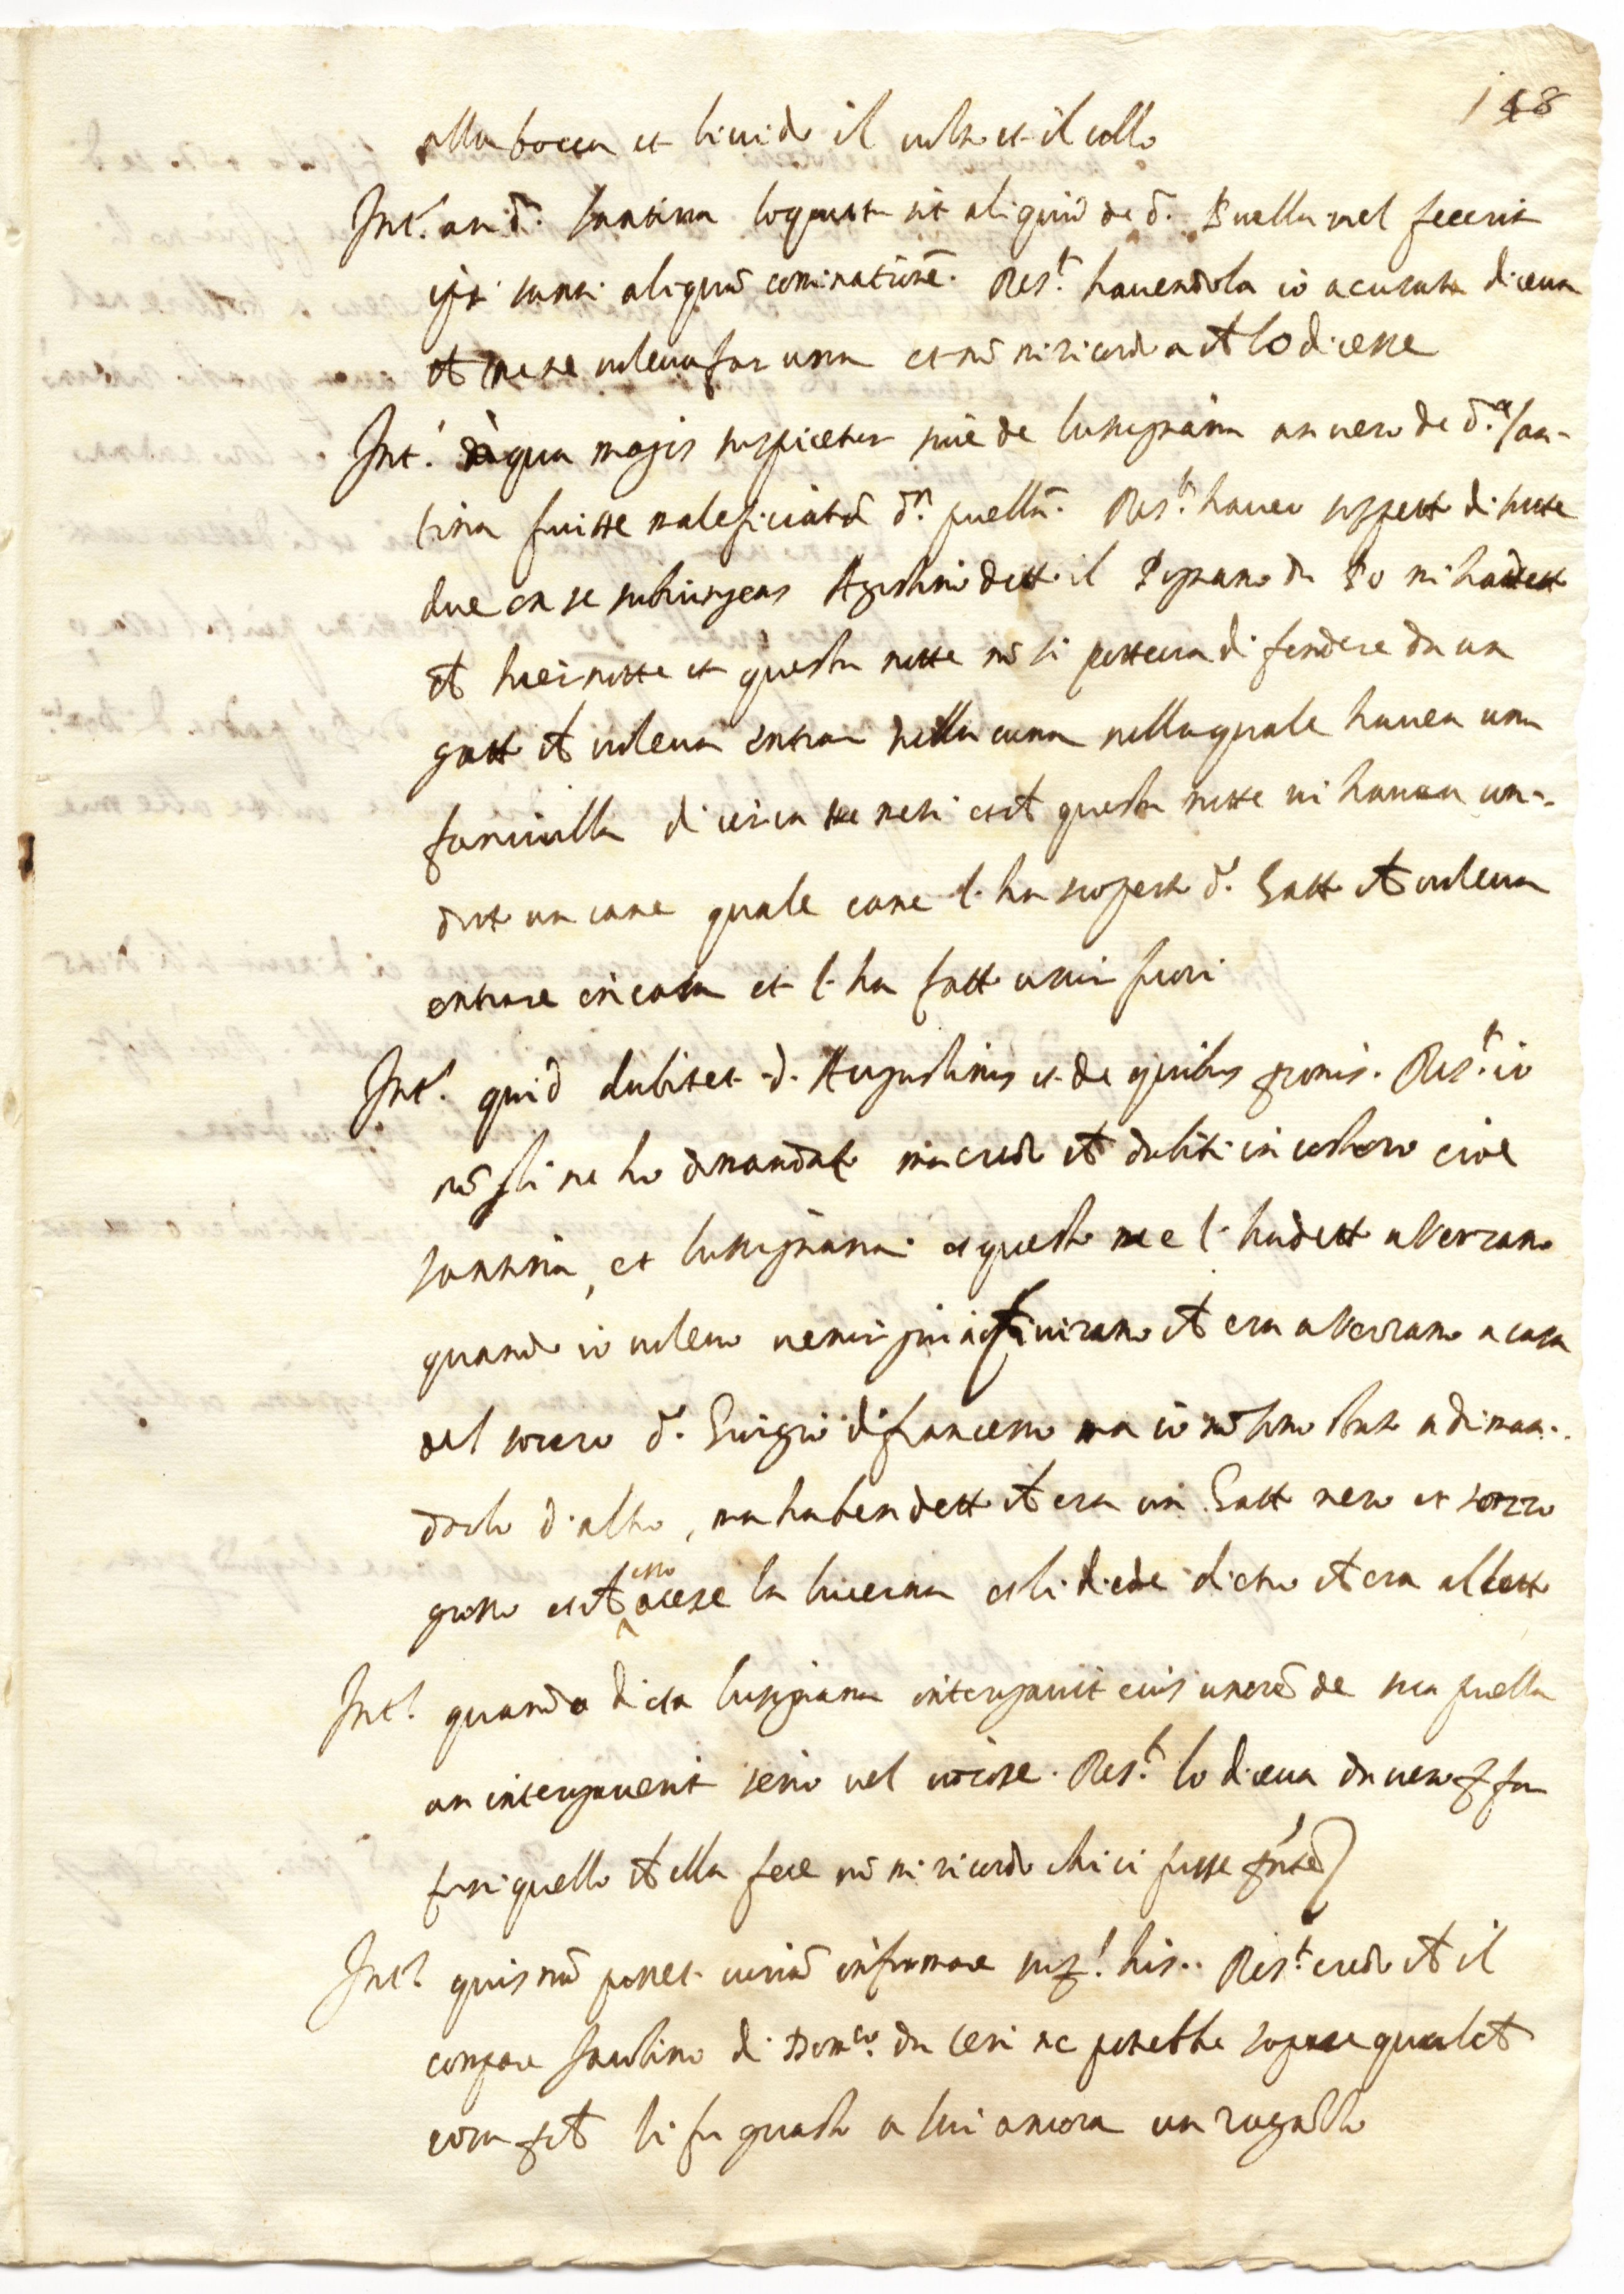 148
alla bocca et livido il volto et il collo
Int.s an d. Santina loquuta sit aliquid de d. Puella vel fecerit
ipsi aliquã cominationẽ. Res.t havendola io acusata diceva
ch me ne voleva far una et nõ mi ricordo a ch lo dicesse
Int.s de qua magis suspicetur sive de lusignana an vero de d.a San-
tina fuisse maleficiatã d.m puellã. Res.t haver sospetto di tutte
due on se subiungens Agostino detto il Pignano da Po mi ha dett
ch hiernotte et questa notte nõ si potteva difendere da un
gatto ch voleva entrar nella cuna nella quale havea una
fanciulla di circa tre mesi et ch questa notte vi havea con-
dott un cane quale cane l'ha scoperto d.o Gatto ch voleva
entrare in casa et l'ha fatto uscir fuori
Int.s quid dubitet d. Augustinus et de quibus personis. Res.t io
nõ gli ne ho domandato ma credo ch dubiti in costoro cioe
santina, et lusignana et questo me l'ha dett a Verzano
quando io volevo venir qui a ch era a Verzano a casa
del socero d.o Guigio di francesco ma io nõ sono stato a diman-
darlo d'altro, ma ha ben dett ch era un Gatto nero et sozzo
grosso et ch esso acese la lucerna et li diede dietro ch era al lett
Int.s quando dicta lusignana interogavit eius uxorẽ de sua puella
an interogaverit serio vel iocose. Res.t lo diceva da vero p far
farsi quello ch ella fece nõ mi ricordo chi ci fusse pñte
Int.s quis nũc posset curiã informare sup.s his. Res.t credo ch il
compare Paolino di Dom.co da Ceri ne potrebbe sapere qualch
cosa p ch li fu guasto a lui ancora un ragazzo